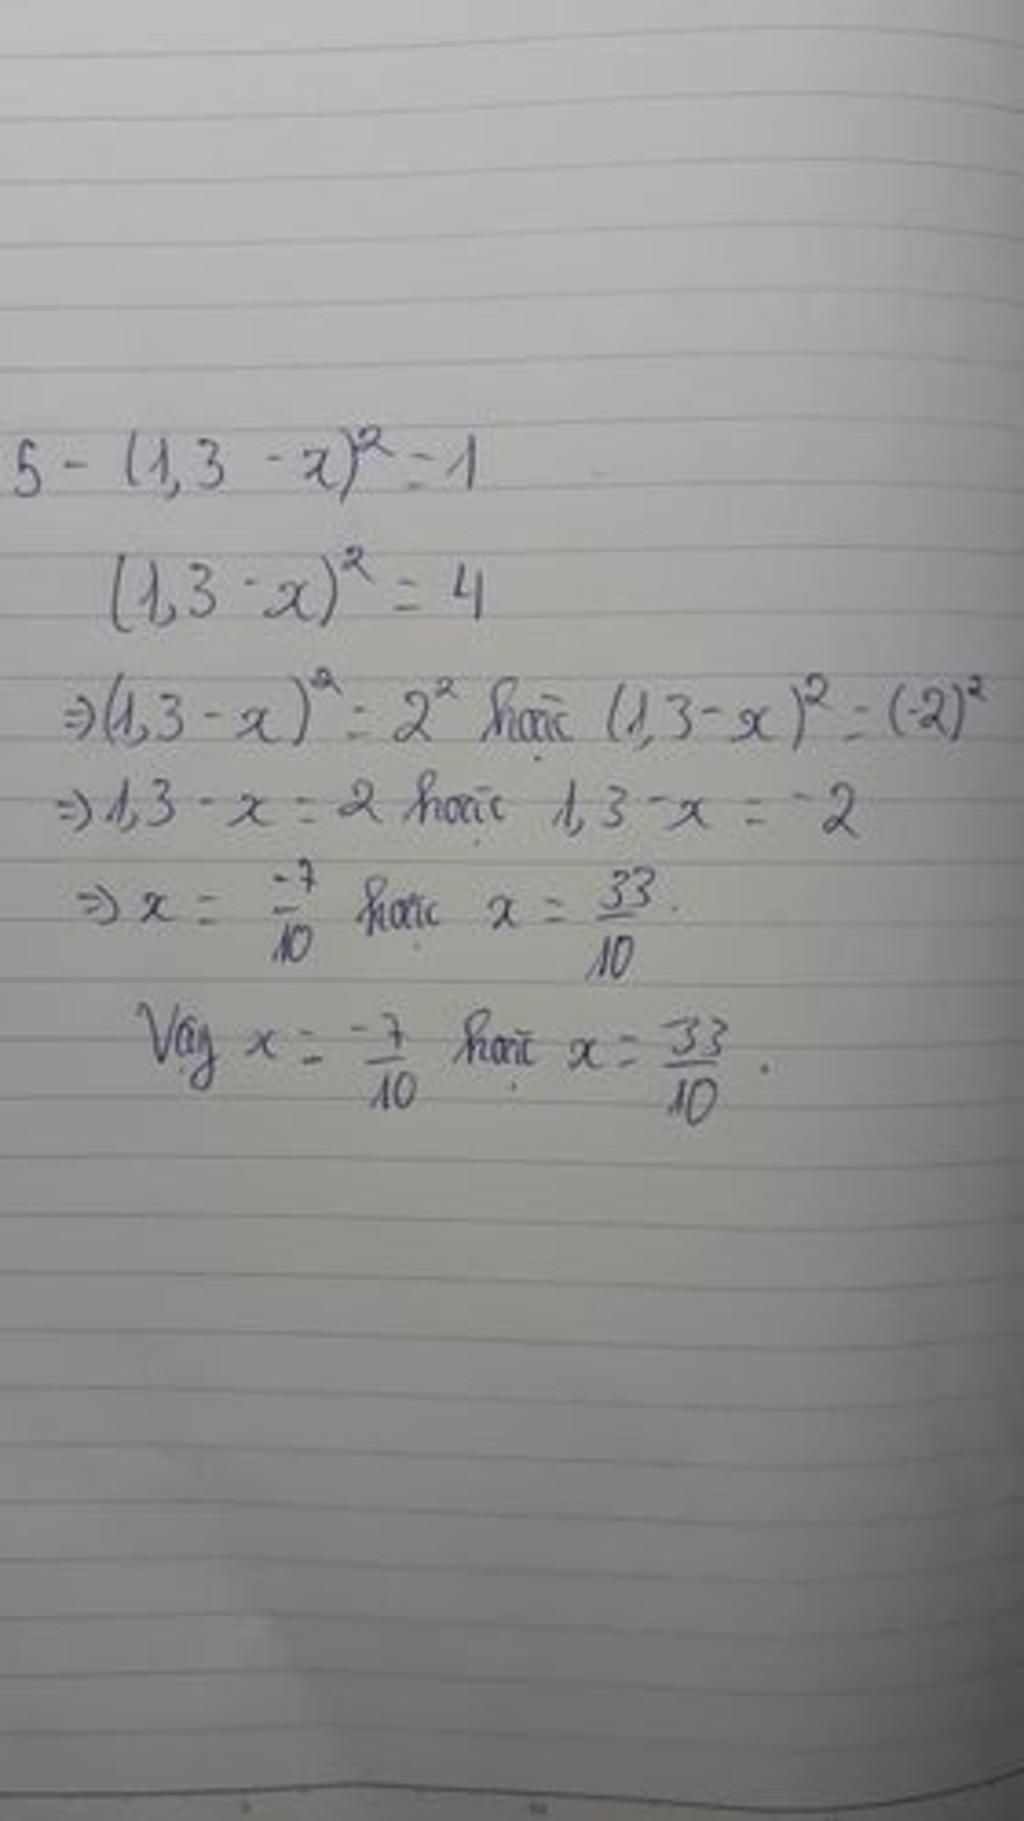 5 - (1,3 - x)² = 1
(1,3 - x)² = 4
⇒ (1,3 - x)² = 2² hoặc (1,3 - x)² = (-2)²
⇒ 1,3 - x = 2 hoặc 1,3 - x = -2
⇒ x = -7/10 hoặc x = 33/10.
Vậy x = -7/10 hoặc x = 33/10.